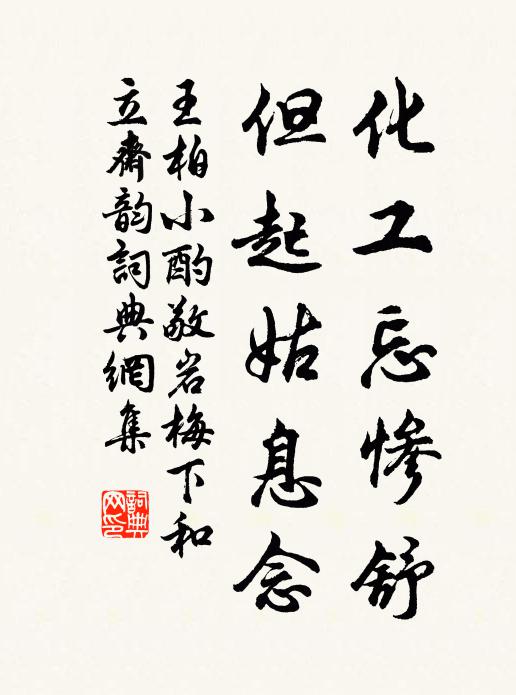 化工忘慘舒
但起姑息念
王柏小酌敬岩梅下和
立齋韵詞典網集
詞典网印